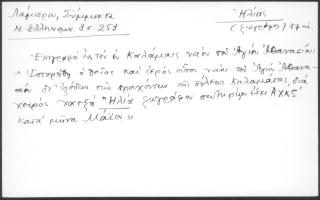 Λάμπρου, Σύμμικτα
Ν. Ἑλληνομν. 3 σ. 253
Ἠλίας
(ζωγράφος) 17 αἰ.
Ἐπιγραφὴ ἐκ τοῦ ἐν Καλάμαις ναοῦ τοῦ Ἁγίου Ἀθανασίου:
"Ἱστορήθη ὁ θεῖος καὶ ἱερὸς οὗτος ναὸς τοῦ Ἁγίου Ἀθανα-
σίου δι' ἐξόδων τῶν προχόντων τῆς πόλεως Καλαμάτας, διὰ
χειρὸς χατζῆ Ἠλία ζωγράφου σωτηρίῳ ἔτει ΑΧΚϚ
κατὰ μῆνα Μάϊον"